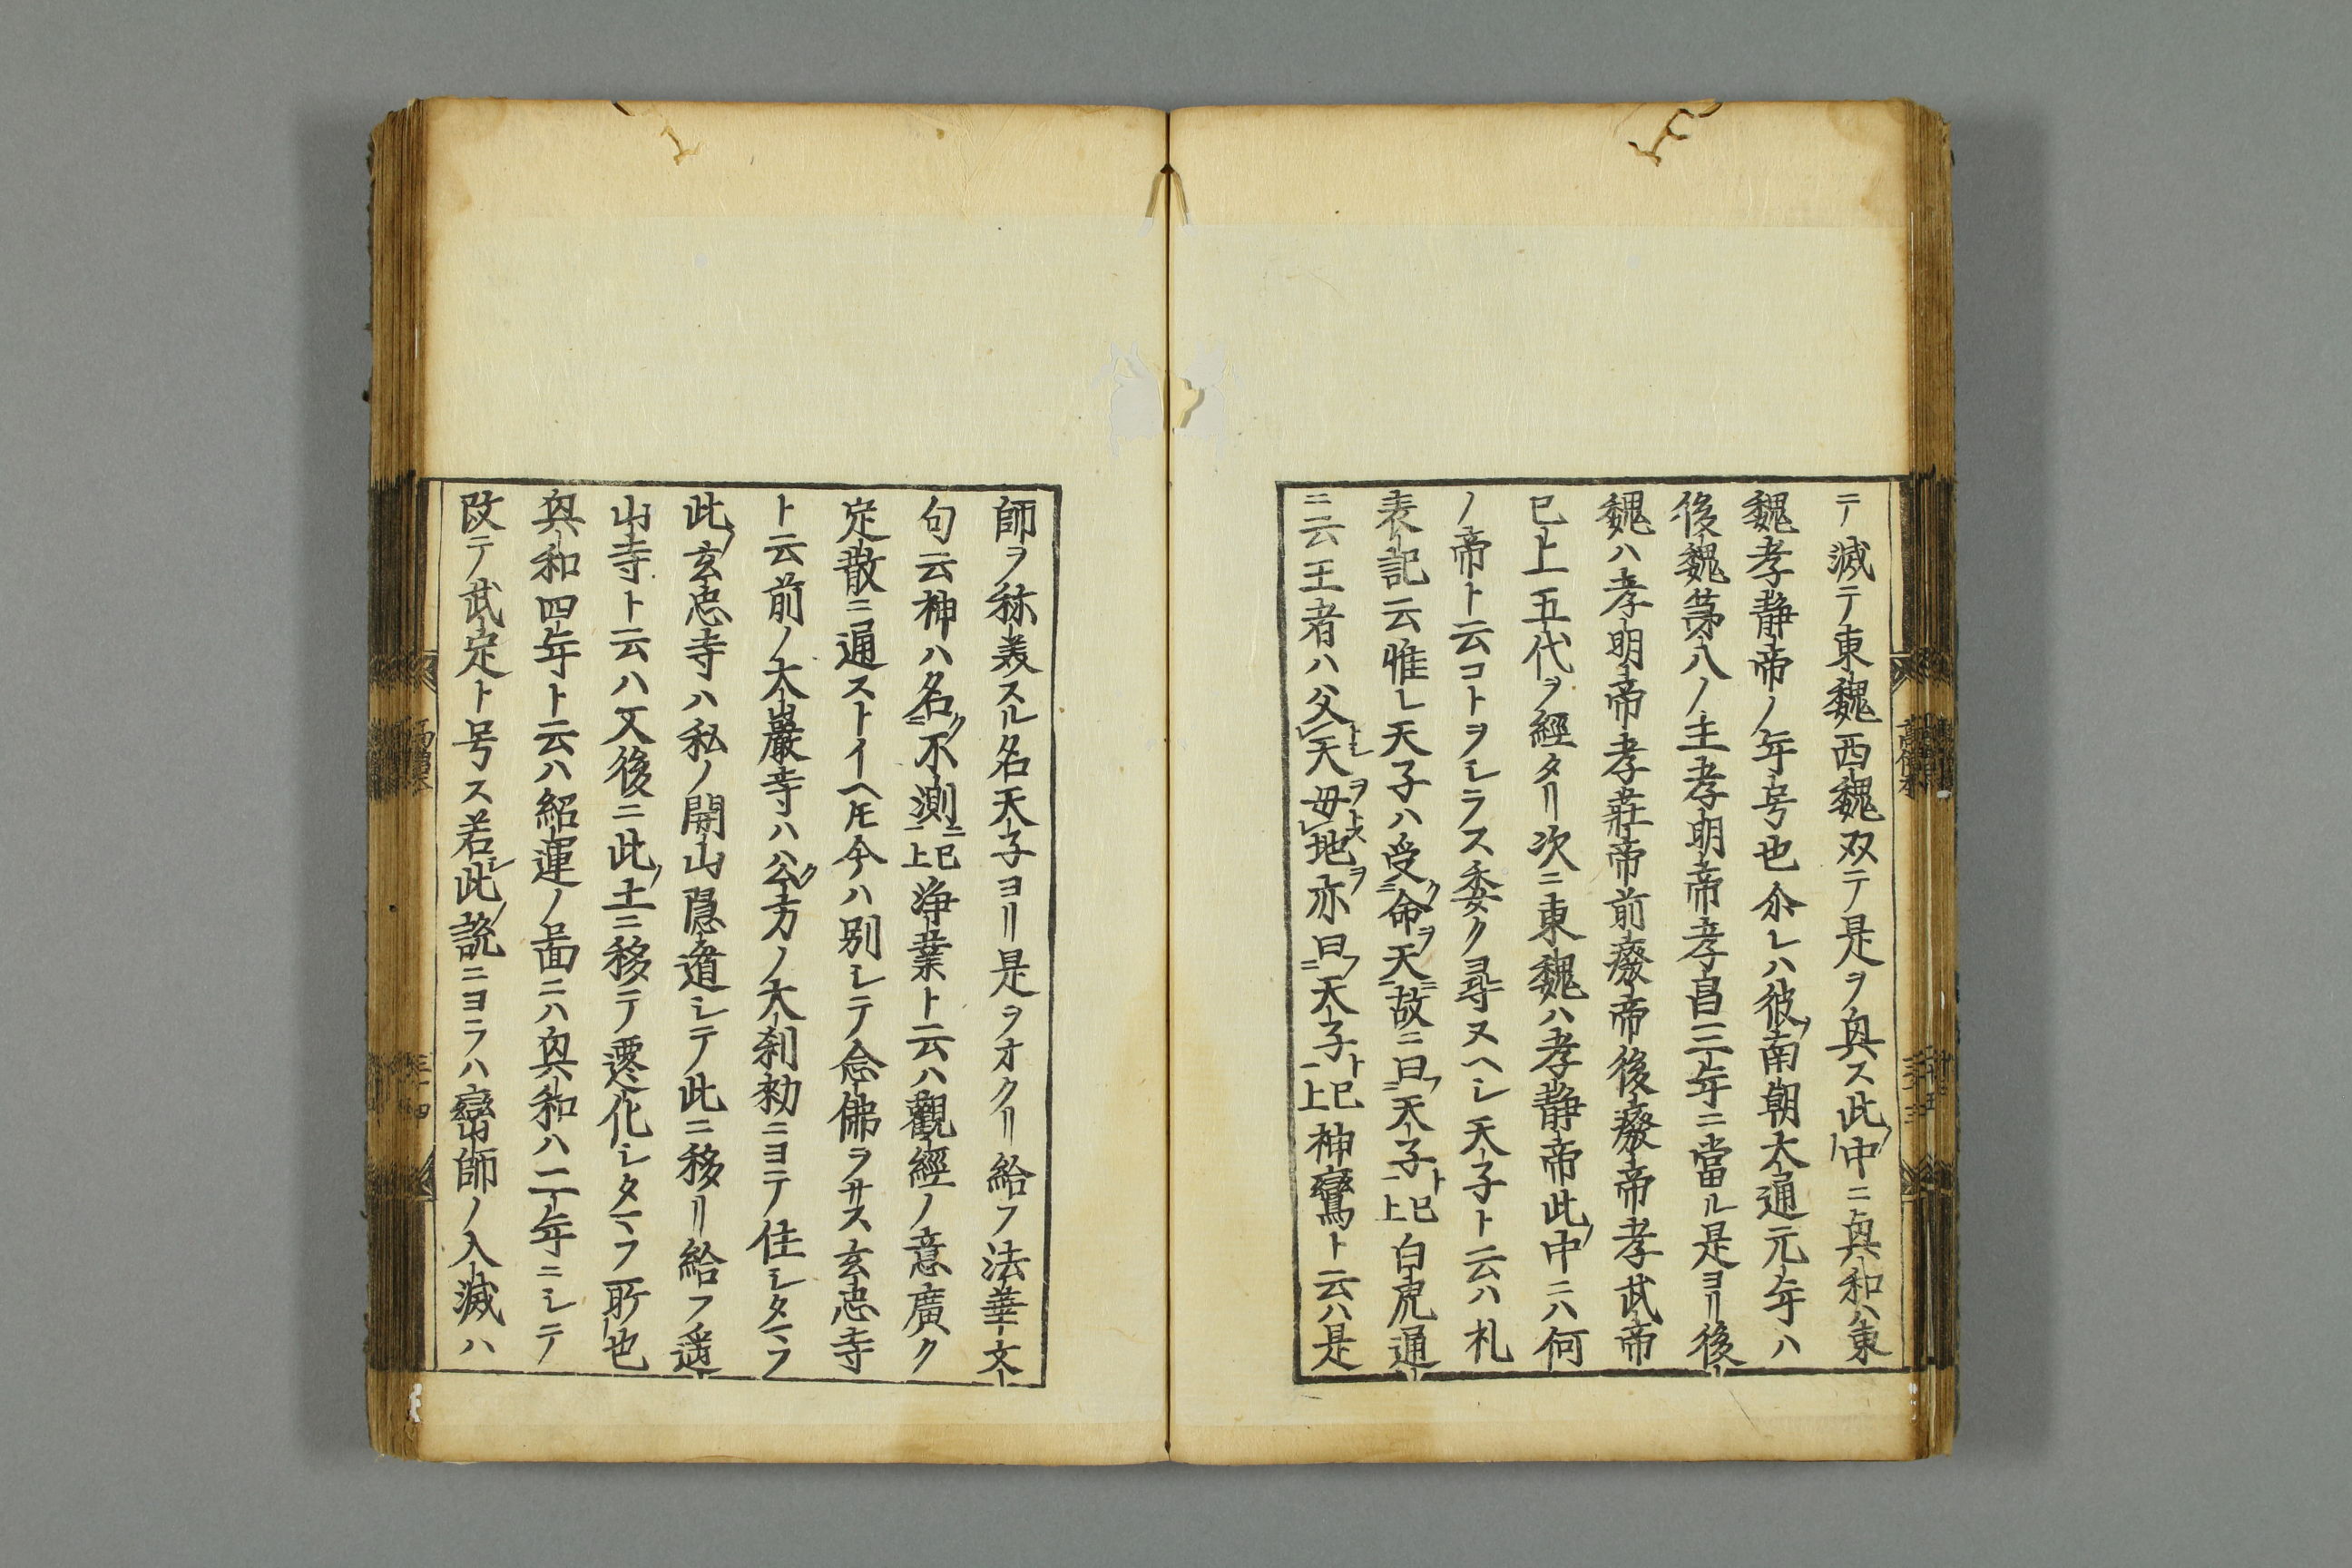 テ滅テ東魏西魏双テ是ヲ與ス此中ニ興和ハ東
魏孝静帝ノ年号也尒レハ彼南朝大通元年ハ
後魏第八ノ主孝明帝孝昌三年ニ當ル是ヨリ後
魏ハ孝明帝孝莊帝前癈帝後癈帝孝武帝
已上五代ヲ經タリ次ニ東魏ハ孝静帝此中ニハ何
ノ帝ト云コトヲシラス委ク尋ヌヘシ天子ト云ハ礼
表記云惟レ天子ハ受命天故ニ曰天子ト已上白虎通
ニ云王者ハ父天母地亦曰天子ト已上神鸞ト云ハ是
師ヲ称美スル名天子ヨリ是ヲオクリ給フ法華文
句云神ハ名不測已上浄業ト云ハ觀經ノ意廣ク
定散ニ通ストイヘ𪜈今ハ別シテ念佛ヲサス玄忠寺
ト云前ノ大巖寺ハ公方ノ大刹勅ニヨテ住シタマフ
此玄忠寺ハ私ノ開山隠遁シテ此ニ移リ給フ遥
山寺ト云ハ又後ニ此土ニ移テ遷化シタマフ所也
興和四年ト云ハ紹運ノ啚ニハ興和ハ二年ニシテ
改テ武定ト号ス若此説ニヨラハ巒師ノ入滅ハ